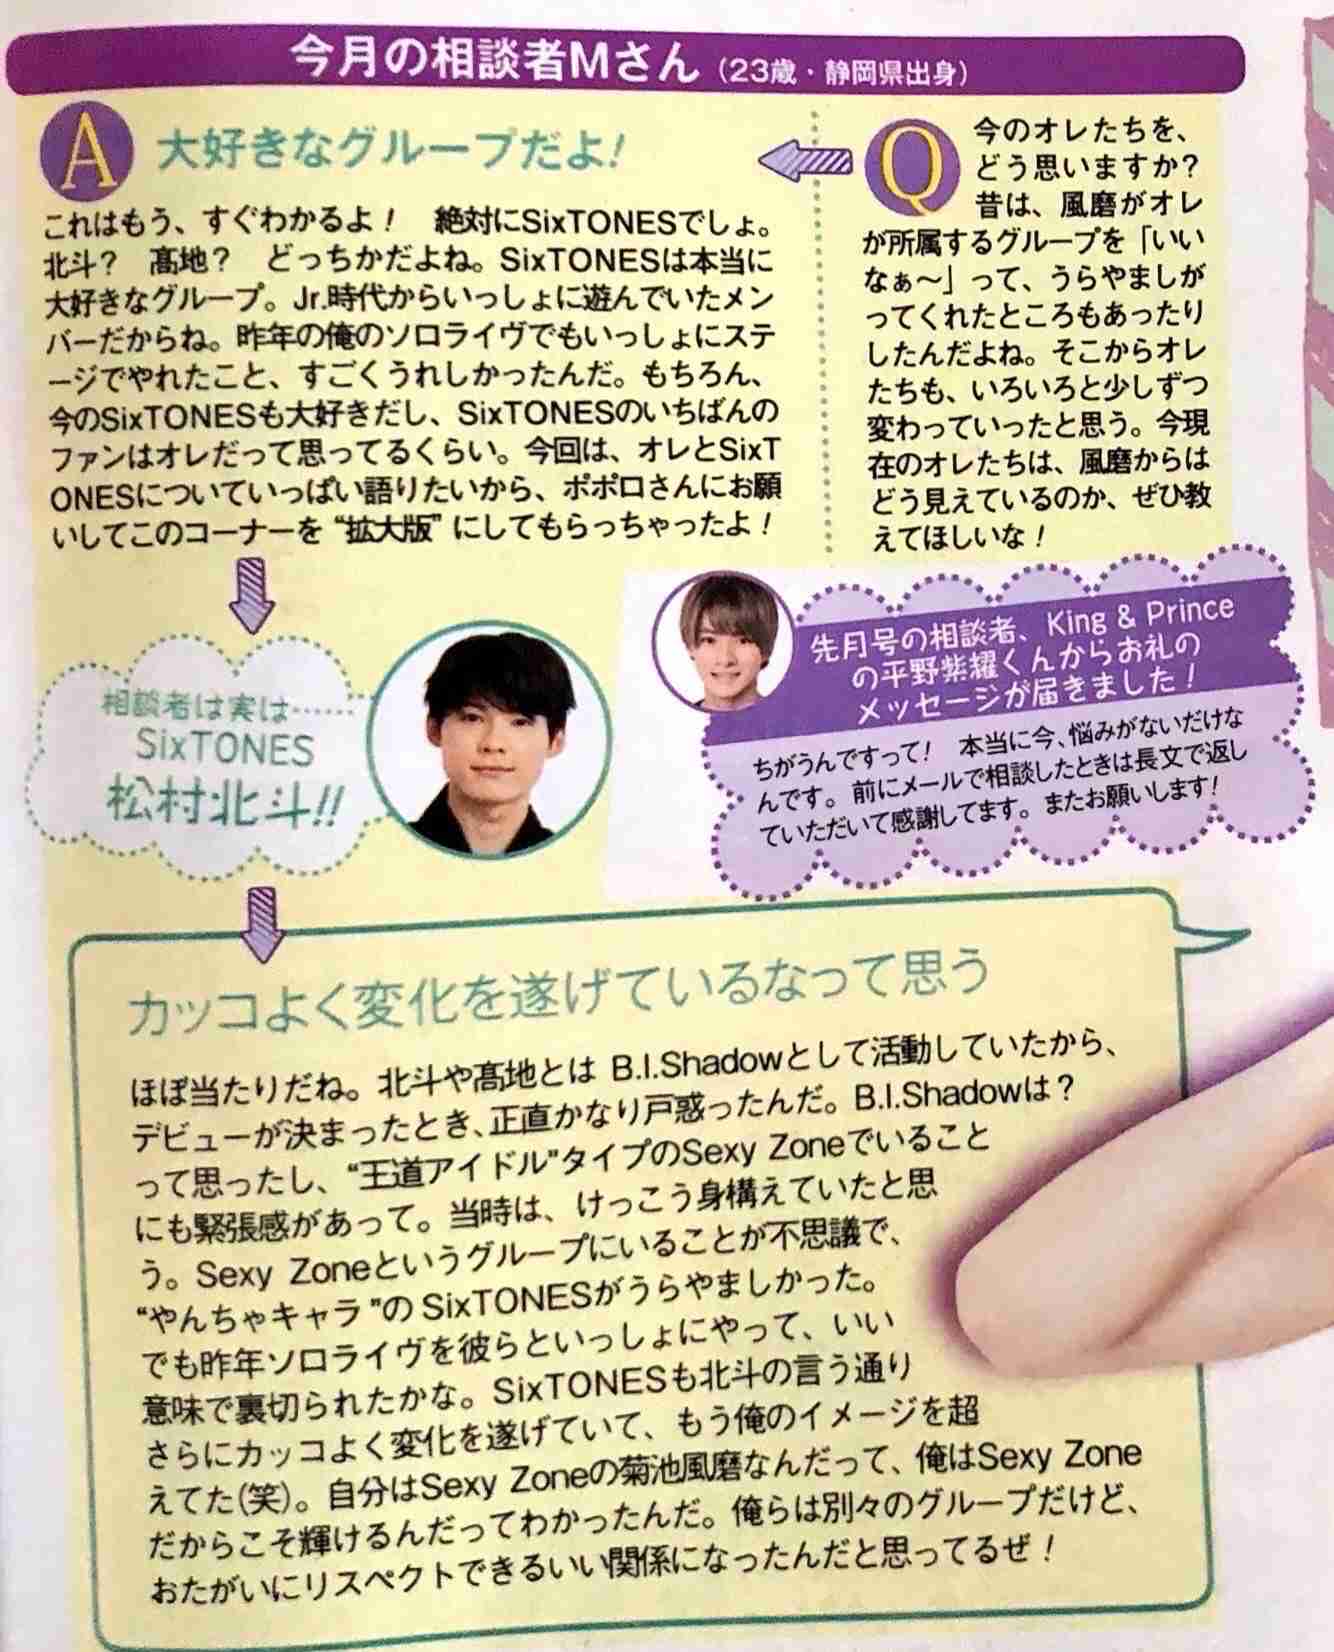 今月の相談者Mさん（23歳・静岡県出身）
Q
今のオレたちを、
どう思いますか？
昔は、風磨がオレ
が所属するグループを「いい
なぁ〜」って、うらやましが
ってくれたところもあったり
したんだよね。そこからオレ
たちも、いろいろと少しずつ
変わっていったと思う。今現
在のオレたちは、風磨からは
どう見えているのか、ぜひ教
えてほしいな！
A
大好きなグループだよ！
これはもう、すぐわかるよ！　絶対にSixTONESでしょ。
北斗？　髙地？　どっちかだよね。SixTONESは本当に
大好きなグループ。Jr.時代からいっしょに遊んでいたメン
バーだからね。昨年の俺のソロライヴでもいっしょにステ
ージでやれたこと、すごくうれしかったんだ。もちろん、
今のSixTONESも大好きだし、SixTONESのいちばんの
ファンはオレだって思ってるくらい。今回は、オレとSixT
ONESについていっぱい語りたいから、ポポロさんにお願
いしてこのコーナーを“拡大版”にしてもらっちゃったよ！
相談者は実は……
SixTONES
松村北斗!!
先月号の相談者、King & Prince
の平野紫耀くんからお礼の
メッセージが届きました！
ちがうんですって！　本当に今、悩みがないだけな
んです。前にメールで相談したときは長文で返し
ていただいて感謝してます。またお願いします！
カッコよく変化を遂げているなって思う
ほぼ当たりだね。北斗や髙地とは B.I.Shadowとして活動していたから、
デビューが決まったとき、正直かなり戸惑ったんだ。B.I.Shadowは？
って思ったし、“王道アイドル”タイプのSexy Zoneでいること
にも緊張感があって。当時は、けっこう身構えていたと思
う。Sexy Zoneというグループにいることが不思議で、
“やんちゃキャラ”のSixTONESがうらやましかった。
でも昨年ソロライヴを彼らといっしょにやって、いい
意味で裏切られたかな。SixTONESも北斗の言う通り
さらにカッコよく変化を遂げていて、もう俺のイメージを超
えてた(笑)。自分はSexy Zoneの菊池風磨なんだって、俺はSexy Zone
だからこそ輝けるんだってわかったんだ。俺らは別々のグループだけど、
おたがいにリスペクトできるいい関係になったんだと思ってるぜ！